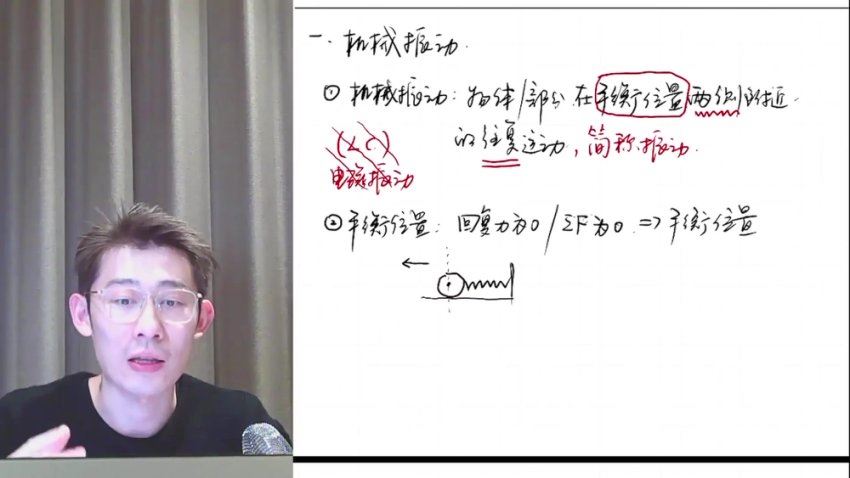 一. 机械振动.
① 机械振动: 物体/部分 在平衡位置两侧附近
的往复运动, 简称振动.
(LC)
电磁振动
② 平衡位置: 回复力为0 / ΣF为0 => 平衡位置